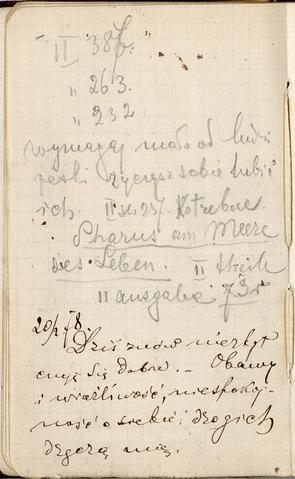 II 387. "
" 263.
" 232
wymagaj mało od ludzi
jeśli życzysz sobie lubić
ich. II st. 27. Kotzebue
Pharus am Meere
des Leben. II theil
11 ausgabe 73 r
20/2 78.
Dziś znów niezbyt
czuję się dobrze. — Obawy
i wrażliwość, niespokoj-
ność o siebie i drogich
dręczą mię.